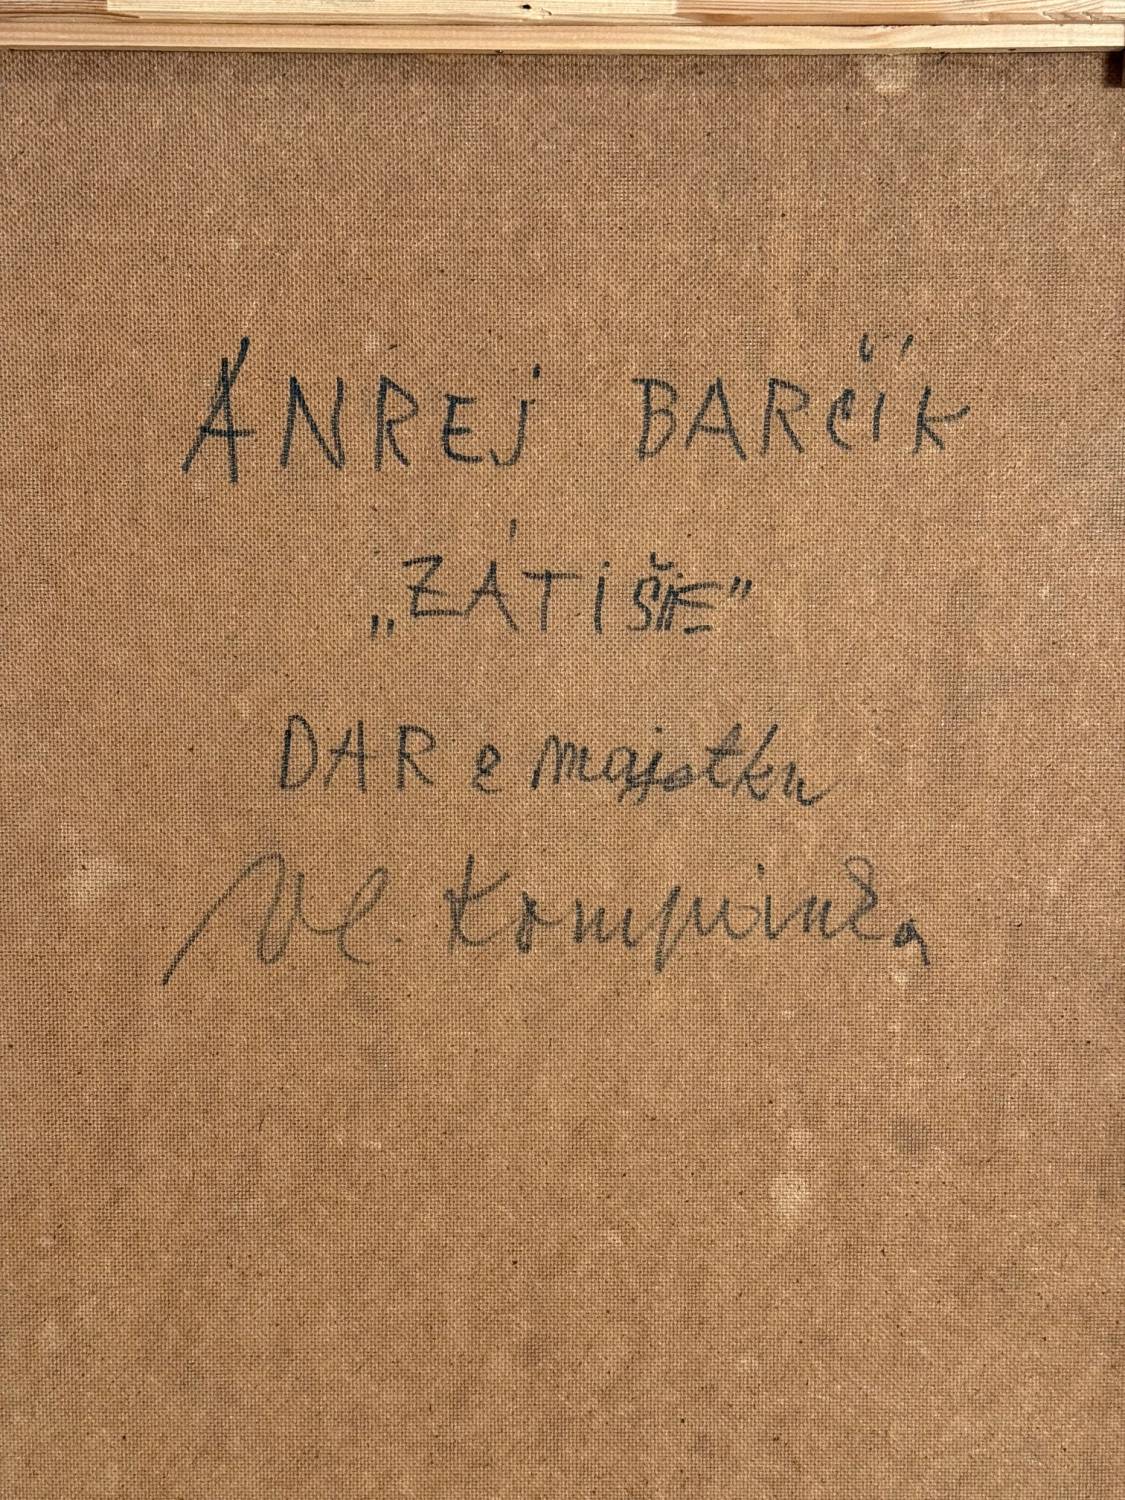 ANREJ BARČÍK
„ZÁTIŠIE"
DAR z majetku
Vl Kompánka